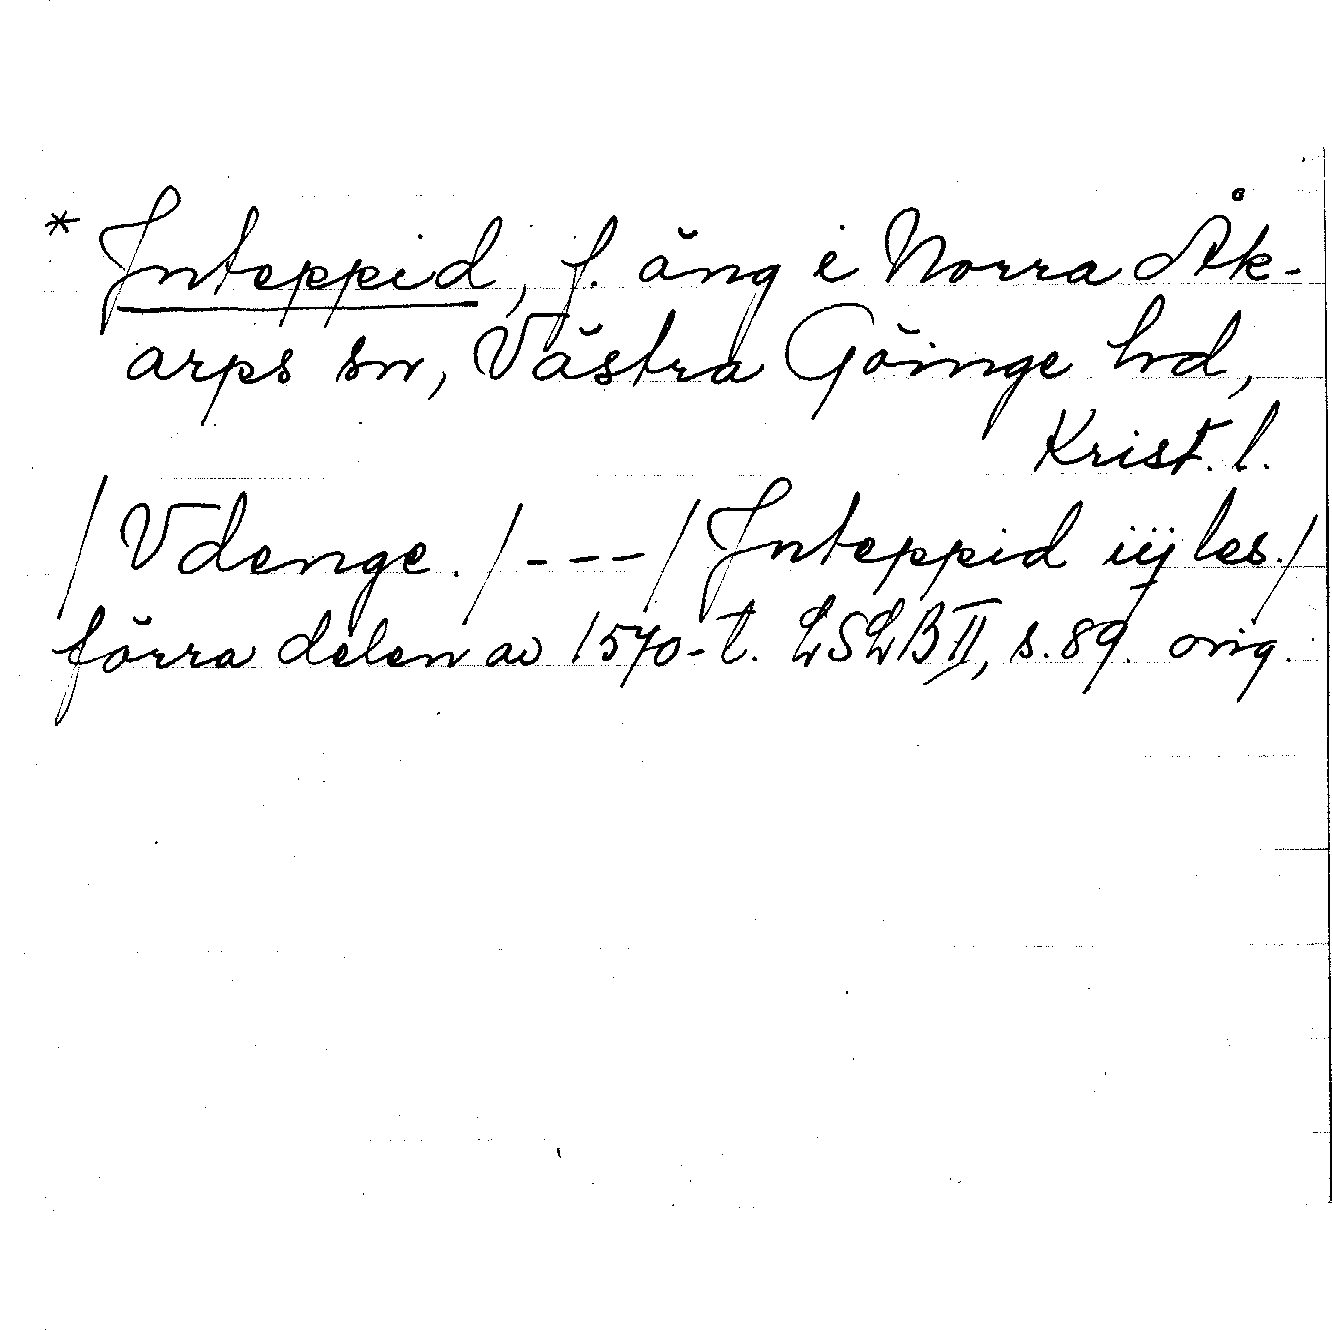 * Jnteppid, f. äng i Norra Åk-
arps sn, Västra Göinge hd,
Krist. l.
/ Vdenge. / --- / Jnteppid iij les. /
förra delen av 1570-t. LSLB II, s. 89. orig.